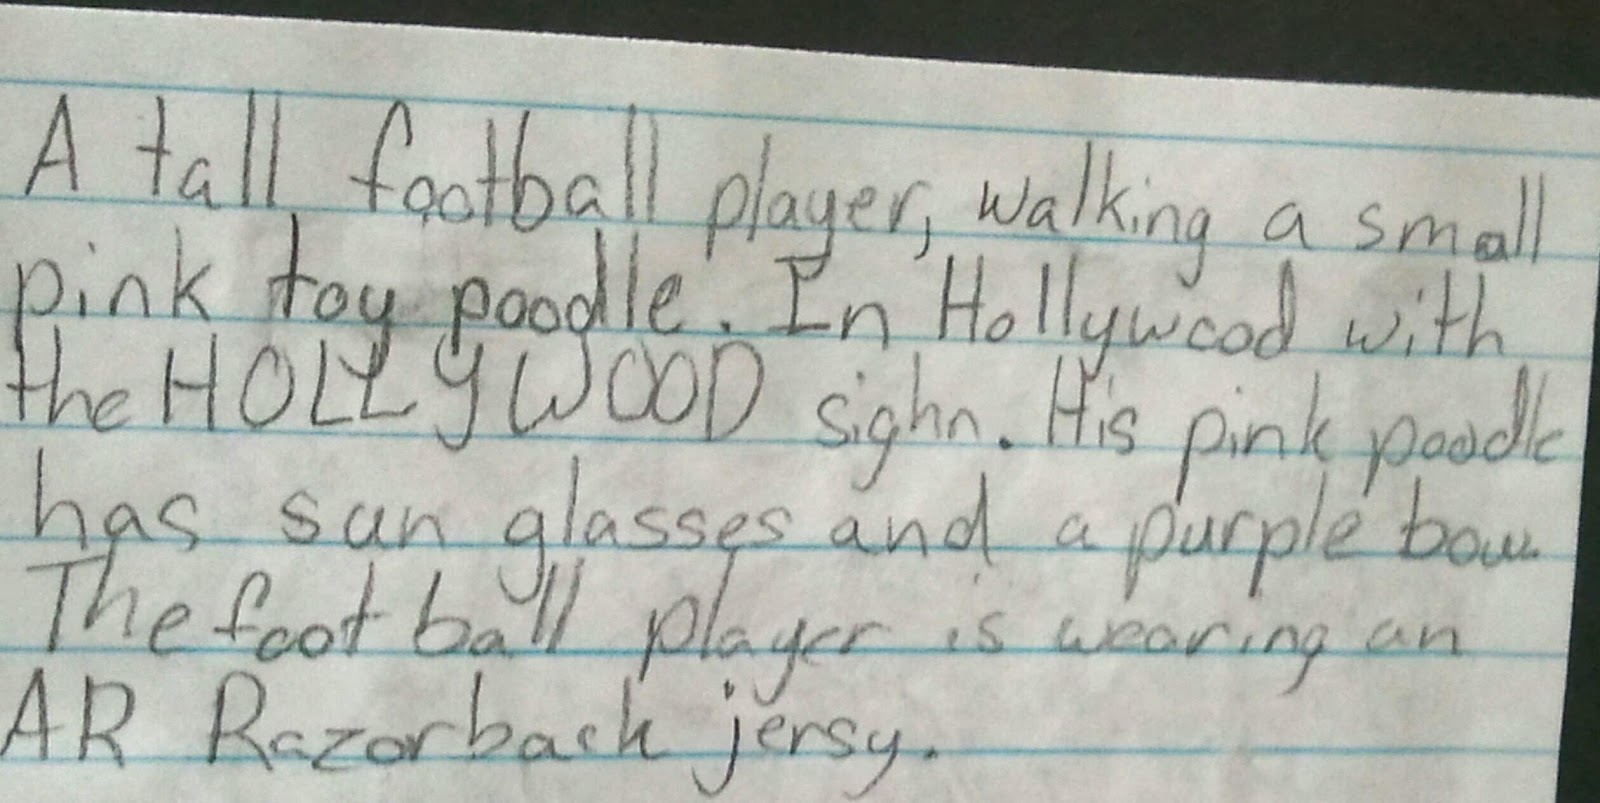 A tall football player, walking a small
pink toy poodle. In Hollywood with
the HOLLYWOOD sighn. His pink poodle
has sun glasses and a purple bow
The foot ball player is wearing an
AR Razorback jersy.